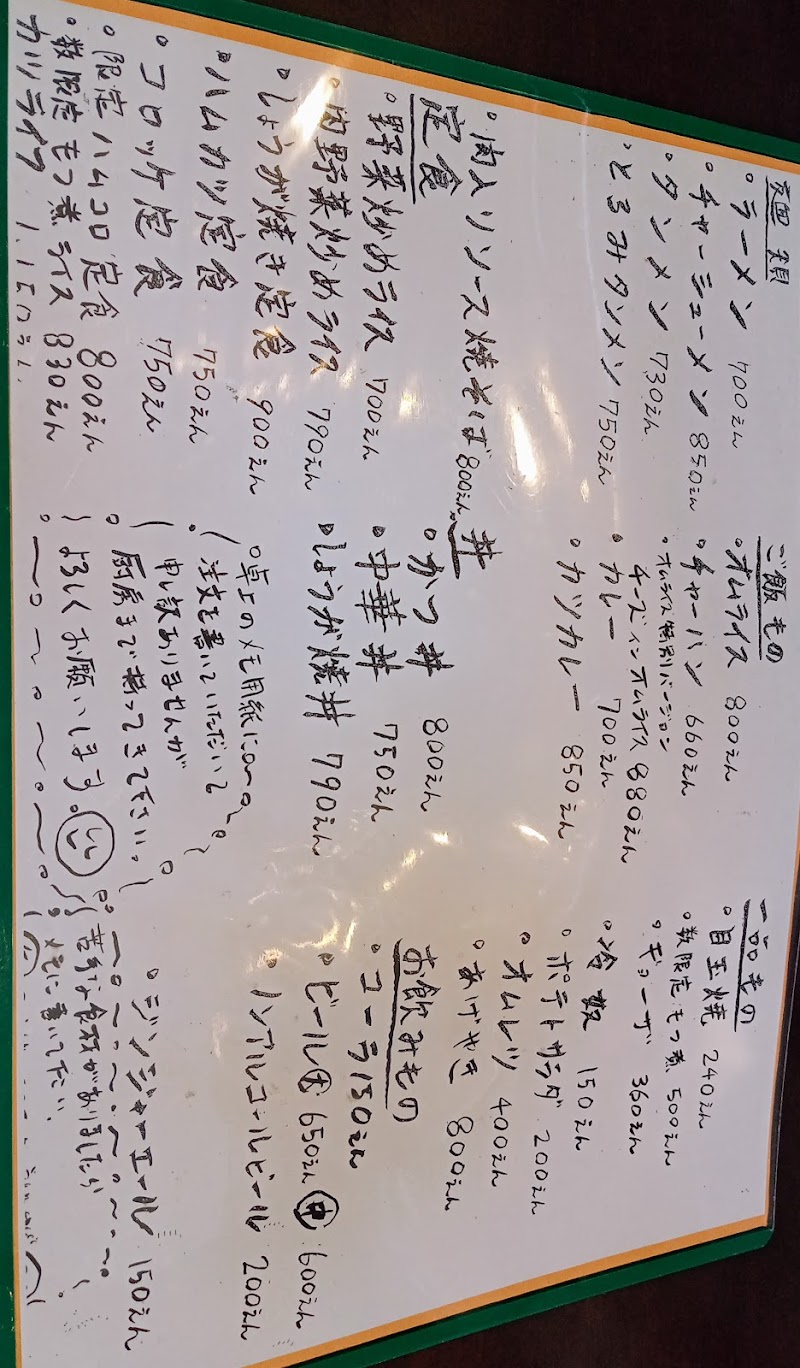 麺類
・ラーメン 700えん
・チャーシューメン 850えん
・タンメン 730えん
・とろみタンメン 750えん
・肉入りソース焼そば 800えん
定食
・野菜炒めライス 700えん
・肉野菜炒めライス 790えん
・しょうが焼き定食 900えん
・ハムカツ定食 750えん
・コロッケ定食 750えん
・限定ハムコロ定食 800えん
・数限定もつ煮ライス 830えん
カツライス 1,150えん
ご飯もの
・オムライス 800えん
・チャーハン 660えん
・オムライス特別バージョン
チーズインオムライス 880えん
・カレー 700えん
・カツカレー 850えん
丼
・かつ丼 800えん
・中華丼 750えん
・しょうが焼丼 790えん
・卓上のメモ用紙に
注文を書いていただいて
申し訳ありませんが
厨房まで持ってきて下さい。
よろしくお願いします。
一品もの
・目玉焼 240えん
・数限定もつ煮 500えん
・ギョーザ 360えん
・冷奴 150えん
・ポテトサラダ 200えん
・オムレツ 400えん
・あげやき 800えん
お飲みもの
・コーラ 150えん
・ビール 大 650えん 中 600えん
・ノンアルコールビール 200えん
・ジンジャーエール 150えん
苦手な食材がありましたら
メモに書いて下さい。